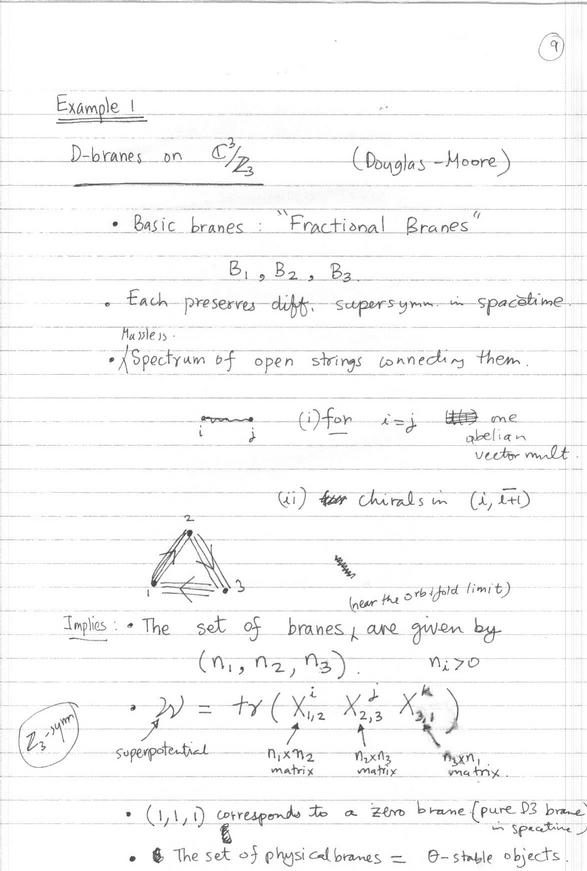 9
Example 1
D-branes on ℂ³/ℤ₃ (Douglas-Moore)
• Basic branes : "Fractional Branes"
B₁, B₂, B₃.
• Each preserves diff. supersymm. in spacetime.
Massless.
• Spectrum of open strings connecting them.
i j (i) for i=j one
abelian
vector mult.
(ii) chirals in (i, i+1)
2
1 3
(near the orbifold limit)
Implies : • The set of branes, are given by
(n₁, n₂, n₃). nᵢ>0
Z₃-symm
• W = tr ( X^i_{1,2} X^j_{2,3} X^k_{3,1} )
superpotential n₁×n₂ n₂×n₃ n₃×n₁
matrix matrix matrix.
• (1,1,1) corresponds to a zero brane. (pure D3 brane)
in spacetime
• The set of physical branes = θ-stable objects.